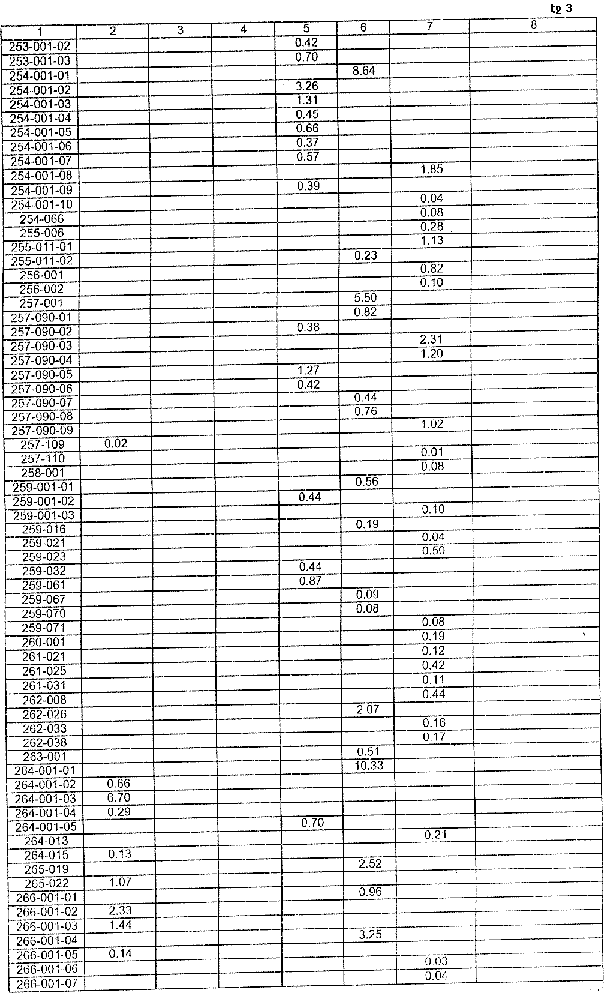 tg 3
1 2 3 4 5 6 7 8
253-001-02 0.42
253-001-03 0.70
254-001-01 8.64
254-001-02 3.26
254-001-03 1.31
254-001-04 0.45
254-001-05 0.66
254-001-06 0.37
254-001-07 0.57
254-001-08 1.85
254-001-09 0.39
254-001-10 0.04
254-066 0.08
255-006 0.28
255-011-01 1.13
255-011-02 0.23
256-001 0.82
256-002 0.10
257-001 5.50
257-090-01 0.82
257-090-02 0.38
257-090-03 2.31
257-090-04 1.20
257-090-05 1.27
257-090-06 0.42
257-090-07 0.44
257-090-08 0.76
257-090-09 1.02
257-109 0.02
257-110 0.01
258-001 0.08
259-001-01 0.56
259-001-02 0.44
259-001-03 0.10
259-016 0.19
259-021 0.04
259-023 0.50
259-032 0.44
259-061 0.87
259-067 0.09
259-070 0.08
259-071 0.08
260-001 0.19
261-021 0.12
261-025 0.42
261-031 0.11
262-008 0.44
262-026 2.07
262-033 0.16
262-038 0.17
263-001 0.51
264-001-01 10.33
264-001-02 0.66
264-001-03 6.70
264-001-04 0.29
264-001-05 0.70
264-013 0.21
264-015 0.13
265-019 2.52
265-022 1.07
266-001-01 0.96
266-001-02 2.33
266-001-03 1.44
266-001-04 3.25
266-001-05 0.14
266-001-06 0.03
266-001-07 0.04